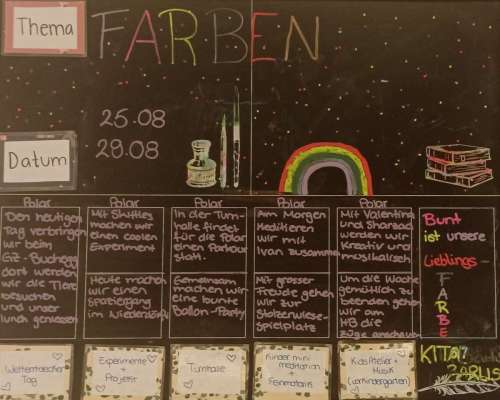 Thema
FARBEN
Datum
25.08
29.08
Polar
Den heutigen
Tag verbringen
wir beim
GZ - Buchegg
dort werden
wir die Tiere
besuchen
und unser
Lunch geniessen
Polar
Mit Shuttles
machen wir
einen coolen
Experiment
Heute machen
wir einen
Spaziergang
im Niederdörfli
Polar
In der Turn-
halle findet
für die Polar
einen Parkour
statt.
Gemeinsam
machen wir
eine bunte
Ballon-Party
Polar
Am Morgen
Meditieren
wir mit
Ivan zusammen
Mit grosser
Freude gehen
wir zur
Stolzenwiese-
spielplatz
Polar
Mit Valentina
und Sharead
werden wir
Kreativ und
musikalisch
Um die Woche
gemütlich zu
beenden gehen
wir am
HB die
Züge anschauen
Bunt
ist unsere
Lieblings-
FARBE
KITA
Weltentdecker
Tag
Experimente
+
Projekt
Turnhalle
Kinder mini
meditation
+
Musik
(Vorkindergarten)